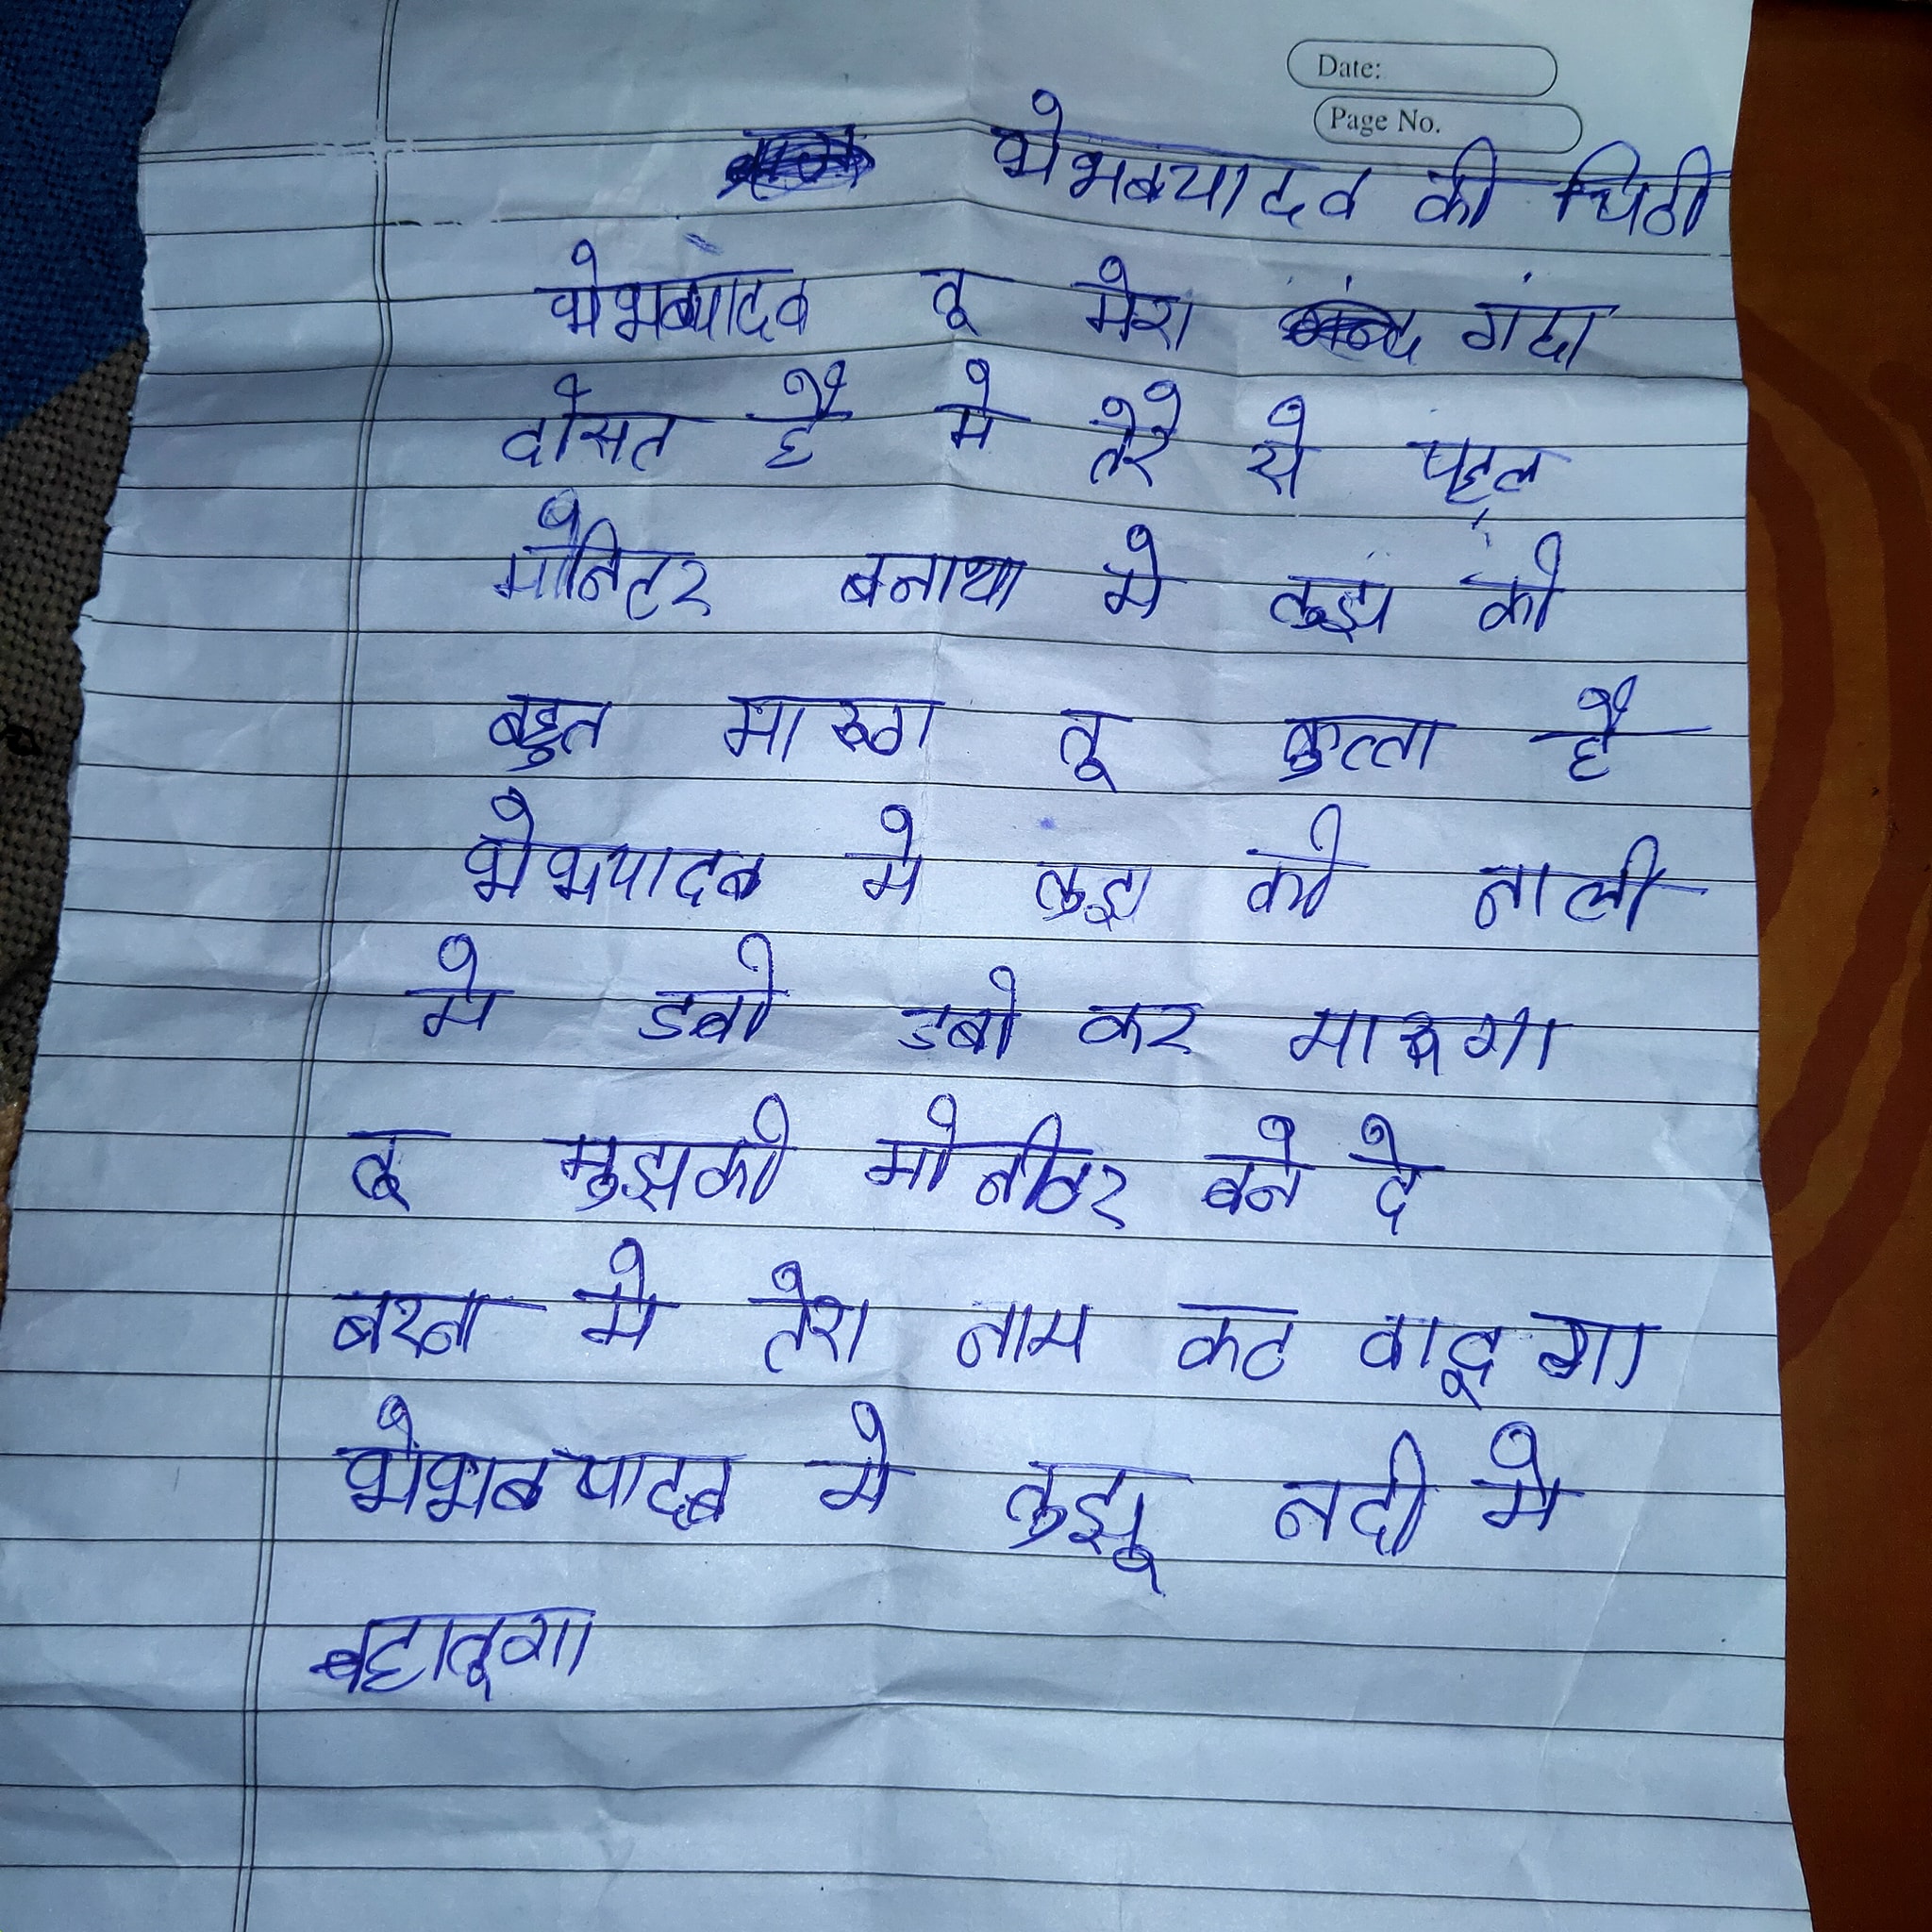 Date:
Page No.
भेभबयादव की चिठी
भेभब्यादव तू मेरा गंदा
दोसत है मे तेरे से पहल
मोनिटर बनाथा मे तुझ को
बहुत मारूगा तू कुत्ता है
भेभयादब मे तुझ को नाली
मे डबो डबो कर मारूगा
तू मुझको मोनीटर बने दे
बरना मे तेरा नाम कट वादूगा
भेभबयादब मे तुझू नदी मे
बहादूगा